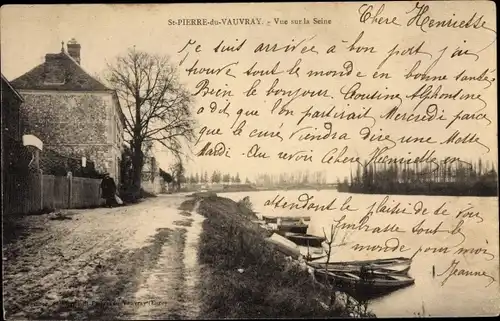 St-PIERRE-du-VAUVRAY. - Vue sur la Seine
Chère Henriette
Je suis arrivée à bon port j'ai
trouvé tout le monde en bonne santé
le bonjour. Cousine Alphontine
a dit que l'on partirait Mercredi parce
que le curé viendra dire une Messe
Mardi - Au revoir Chère Henriette en
attendant le plaisir de te voir
Embrasse tout le
monde pour moi
Jeanne